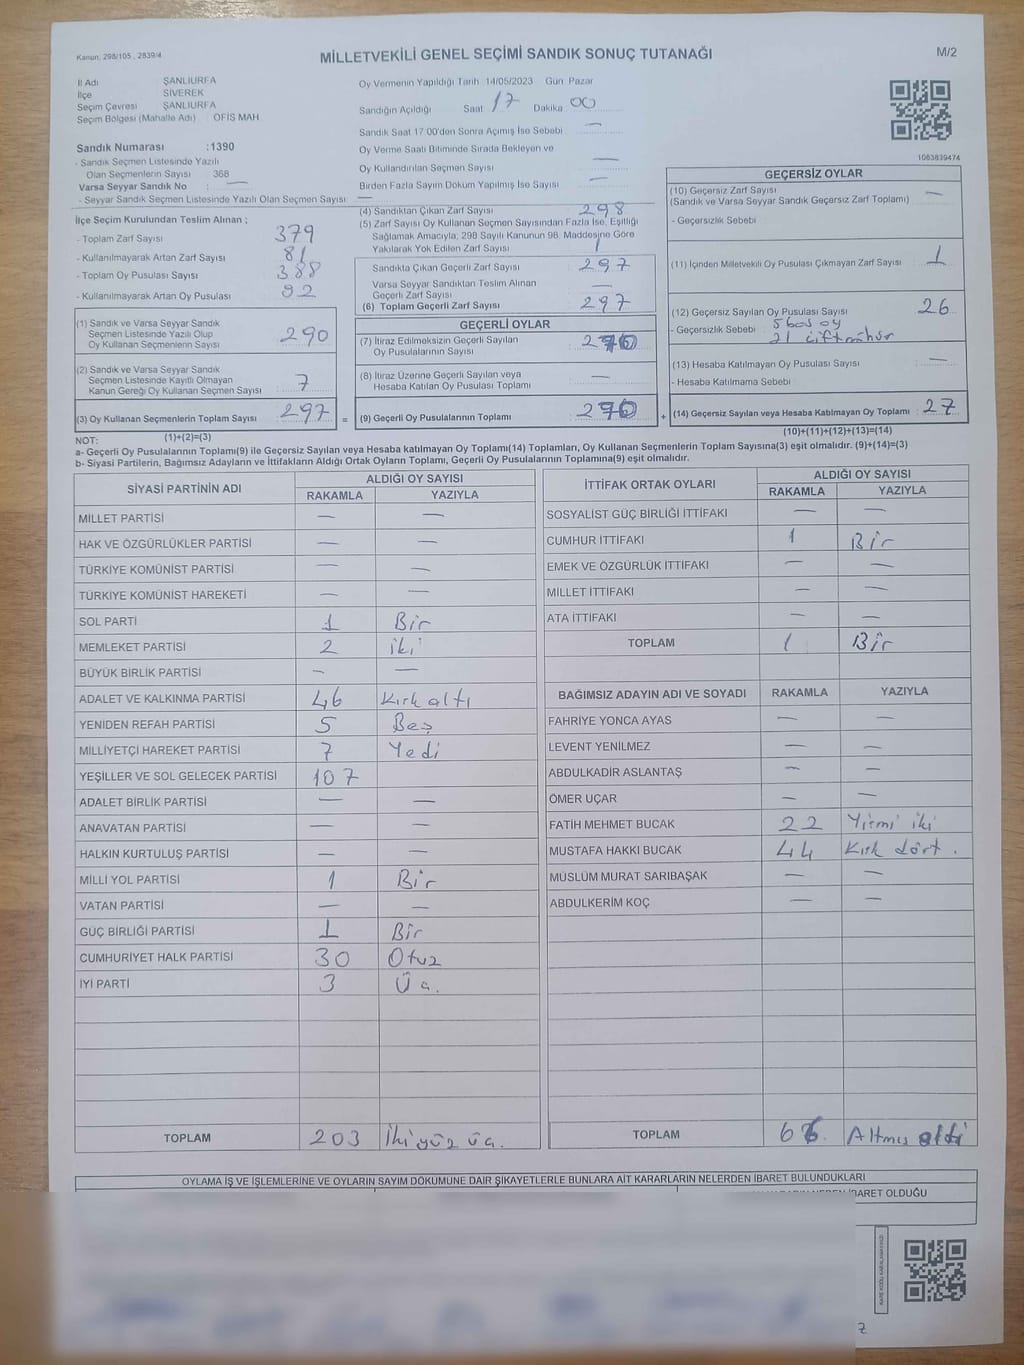 Kanun; 298/105 , 2839/4
MİLLETVEKİLİ GENEL SEÇİMİ SANDIK SONUÇ TUTANAĞI
M/2
İl Adı ŞANLIURFA
İlçe SİVEREK
Seçim Çevresi ŞANLIURFA
Seçim Bölgesi (Mahalle Adı) OFİS MAH
Sandık Numarası :1390
- Sandık Seçmen Listesinde Yazılı
Olan Seçmenlerin Sayısı 368
Varsa Seyyar Sandık No : —
- Seyyar Sandık Seçmen Listesinde Yazılı Olan Seçmen Sayısı —
Oy Vermenin Yapıldığı Tarih 14/05/2023 Gün Pazar
Sandığın Açıldığı Saat 17 Dakika 00
Sandık Saat 17 00'den Sonra Açımış İse Sebebi —
Oy Verme Saati Bitiminde Sırada Bekleyen ve
Oy Kullandırılan Seçmen Sayısı —
Birden Fazla Sayım Döküm Yapılmış İse Sayısı —
1083839474
İlçe Seçim Kurulundan Teslim Alınan ;
- Toplam Zarf Sayısı 379
- Kullanılmayarak Artan Zarf Sayısı 81
- Toplam Oy Pusulası Sayısı 388
- Kullanılmayarak Artan Oy Pusulası 92
(1) Sandık ve Varsa Seyyar Sandık
Seçmen Listesinde Yazılı Olup
Oy Kullanan Seçmenlerin Sayısı 290
(2) Sandık ve Varsa Seyyar Sandık
Seçmen Listesinde Kayıtlı Olmayan
Kanun Gereği Oy Kullanan Seçmen Sayısı 7
(3) Oy Kullanan Seçmenlerin Toplam Sayısı 297 =
(1)+(2)=(3)
(4) Sandıktan Çıkan Zarf Sayısı 298
(5) Zarf Sayısı Oy Kullanan Seçmen Sayısından Fazla İse, Eşitliği
Sağlamak Amacıyla, 298 Sayılı Kanunun 98. Maddesine Göre
Yakılarak Yok Edilen Zarf Sayısı 1
Sandıkta Çıkan Geçerli Zarf Sayısı 297
Varsa Seyyar Sandıktan Teslim Alınan
Geçerli Zarf Sayısı —
(6) Toplam Geçerli Zarf Sayısı 297
GEÇERLİ OYLAR
(7) İtiraz Edilmeksizin Geçerli Sayılan
Oy Pusulalarının Sayısı 270
(8) İtiraz Üzerine Geçerli Sayılan veya
Hesaba Katılan Oy Pusulası Toplamı —
(9) Geçerli Oy Pusulalarının Toplamı 270 +
GEÇERSİZ OYLAR
(10) Geçersiz Zarf Sayısı —
(Sandık ve Varsa Seyyar Sandık Geçersiz Zarf Toplamı)
- Geçersizlik Sebebi
(11) İçinden Milletvekili Oy Pusulası Çıkmayan Zarf Sayısı 1
(12) Geçersiz Sayılan Oy Pusulası Sayısı 26
- Geçersizlik Sebebi : 5 boş oy
21 çift mühür
(13) Hesaba Katılmayan Oy Pusulası Sayısı —
- Hesaba Katılmama Sebebi
(14) Geçersiz Sayılan veya Hesaba Katılmayan Oy Toplamı : 27
(10)+(11)+(12)+(13)=(14)
NOT:
a- Geçerli Oy Pusulalarının Toplamı(9) ile Geçersiz Sayılan veya Hesaba katılmayan Oy Toplamı(14) Toplamları, Oy Kullanan Seçmenlerin Toplam Sayısına(3) eşit olmalıdır. (9)+(14)=(3)
b- Siyasi Partilerin, Bağımsız Adayların ve İttifakların Aldığı Ortak Oyların Toplamı, Geçerli Oy Pusulalarının Toplamına(9) eşit olmalıdır.
SİYASİ PARTİNİN ADI ALDIĞI OY SAYISI
RAKAMLA YAZIYLA
MİLLET PARTİSİ — —
HAK VE ÖZGÜRLÜKLER PARTİSİ — —
TÜRKİYE KOMÜNİST PARTİSİ — —
TÜRKİYE KOMÜNİST HAREKETİ — —
SOL PARTİ 1 Bir
MEMLEKET PARTİSİ 2 iki
BÜYÜK BİRLİK PARTİSİ — —
ADALET VE KALKINMA PARTİSİ 46 Kırk altı
YENİDEN REFAH PARTİSİ 5 Beş
MİLLİYETÇİ HAREKET PARTİSİ 7 Yedi
YEŞİLLER VE SOL GELECEK PARTİSİ 107
ADALET BİRLİK PARTİSİ — —
ANAVATAN PARTİSİ — —
HALKIN KURTULUŞ PARTİSİ — —
MİLLİ YOL PARTİSİ 1 Bir
VATAN PARTİSİ — —
GÜÇ BİRLİĞİ PARTİSİ 1 Bir
CUMHURİYET HALK PARTİSİ 30 Otuz
İYİ PARTİ 3 Üç.
TOPLAM 203 İki yüz üç.
İTTİFAK ORTAK OYLARI ALDIĞI OY SAYISI
RAKAMLA YAZIYLA
SOSYALİST GÜÇ BİRLİĞİ İTTİFAKI — —
CUMHUR İTTİFAKI 1 Bir
EMEK VE ÖZGÜRLÜK İTTİFAKI — —
MİLLET İTTİFAKI — —
ATA İTTİFAKI — —
TOPLAM 1 Bir
BAĞIMSIZ ADAYIN ADI VE SOYADI RAKAMLA YAZIYLA
FAHRİYE YONCA AYAS — —
LEVENT YENİLMEZ — —
ABDULKADİR ASLANTAŞ — —
ÖMER UÇAR — —
FATİH MEHMET BUCAK 22 Yirmi iki
MUSTAFA HAKKI BUCAK 44 Kırk dört .
MÜSLÜM MURAT SARIBAŞAK — —
ABDULKERİM KOÇ — —
TOPLAM 66. Altmış altı
OYLAMA İŞ VE İŞLEMLERİNE VE OYLARIN SAYIM DÖKÜMÜNE DAİR ŞİKAYETLERLE BUNLARA AİT KARARLARIN NELERDEN İBARET BULUNDUKLARI
İBARET OLDUĞU